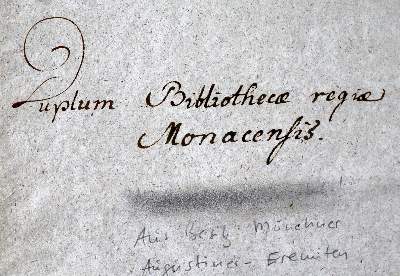 Duplum Bibliothecæ regiæ
Monacensis.
Aus Besitz Münchner
Augustiner-Eremiten